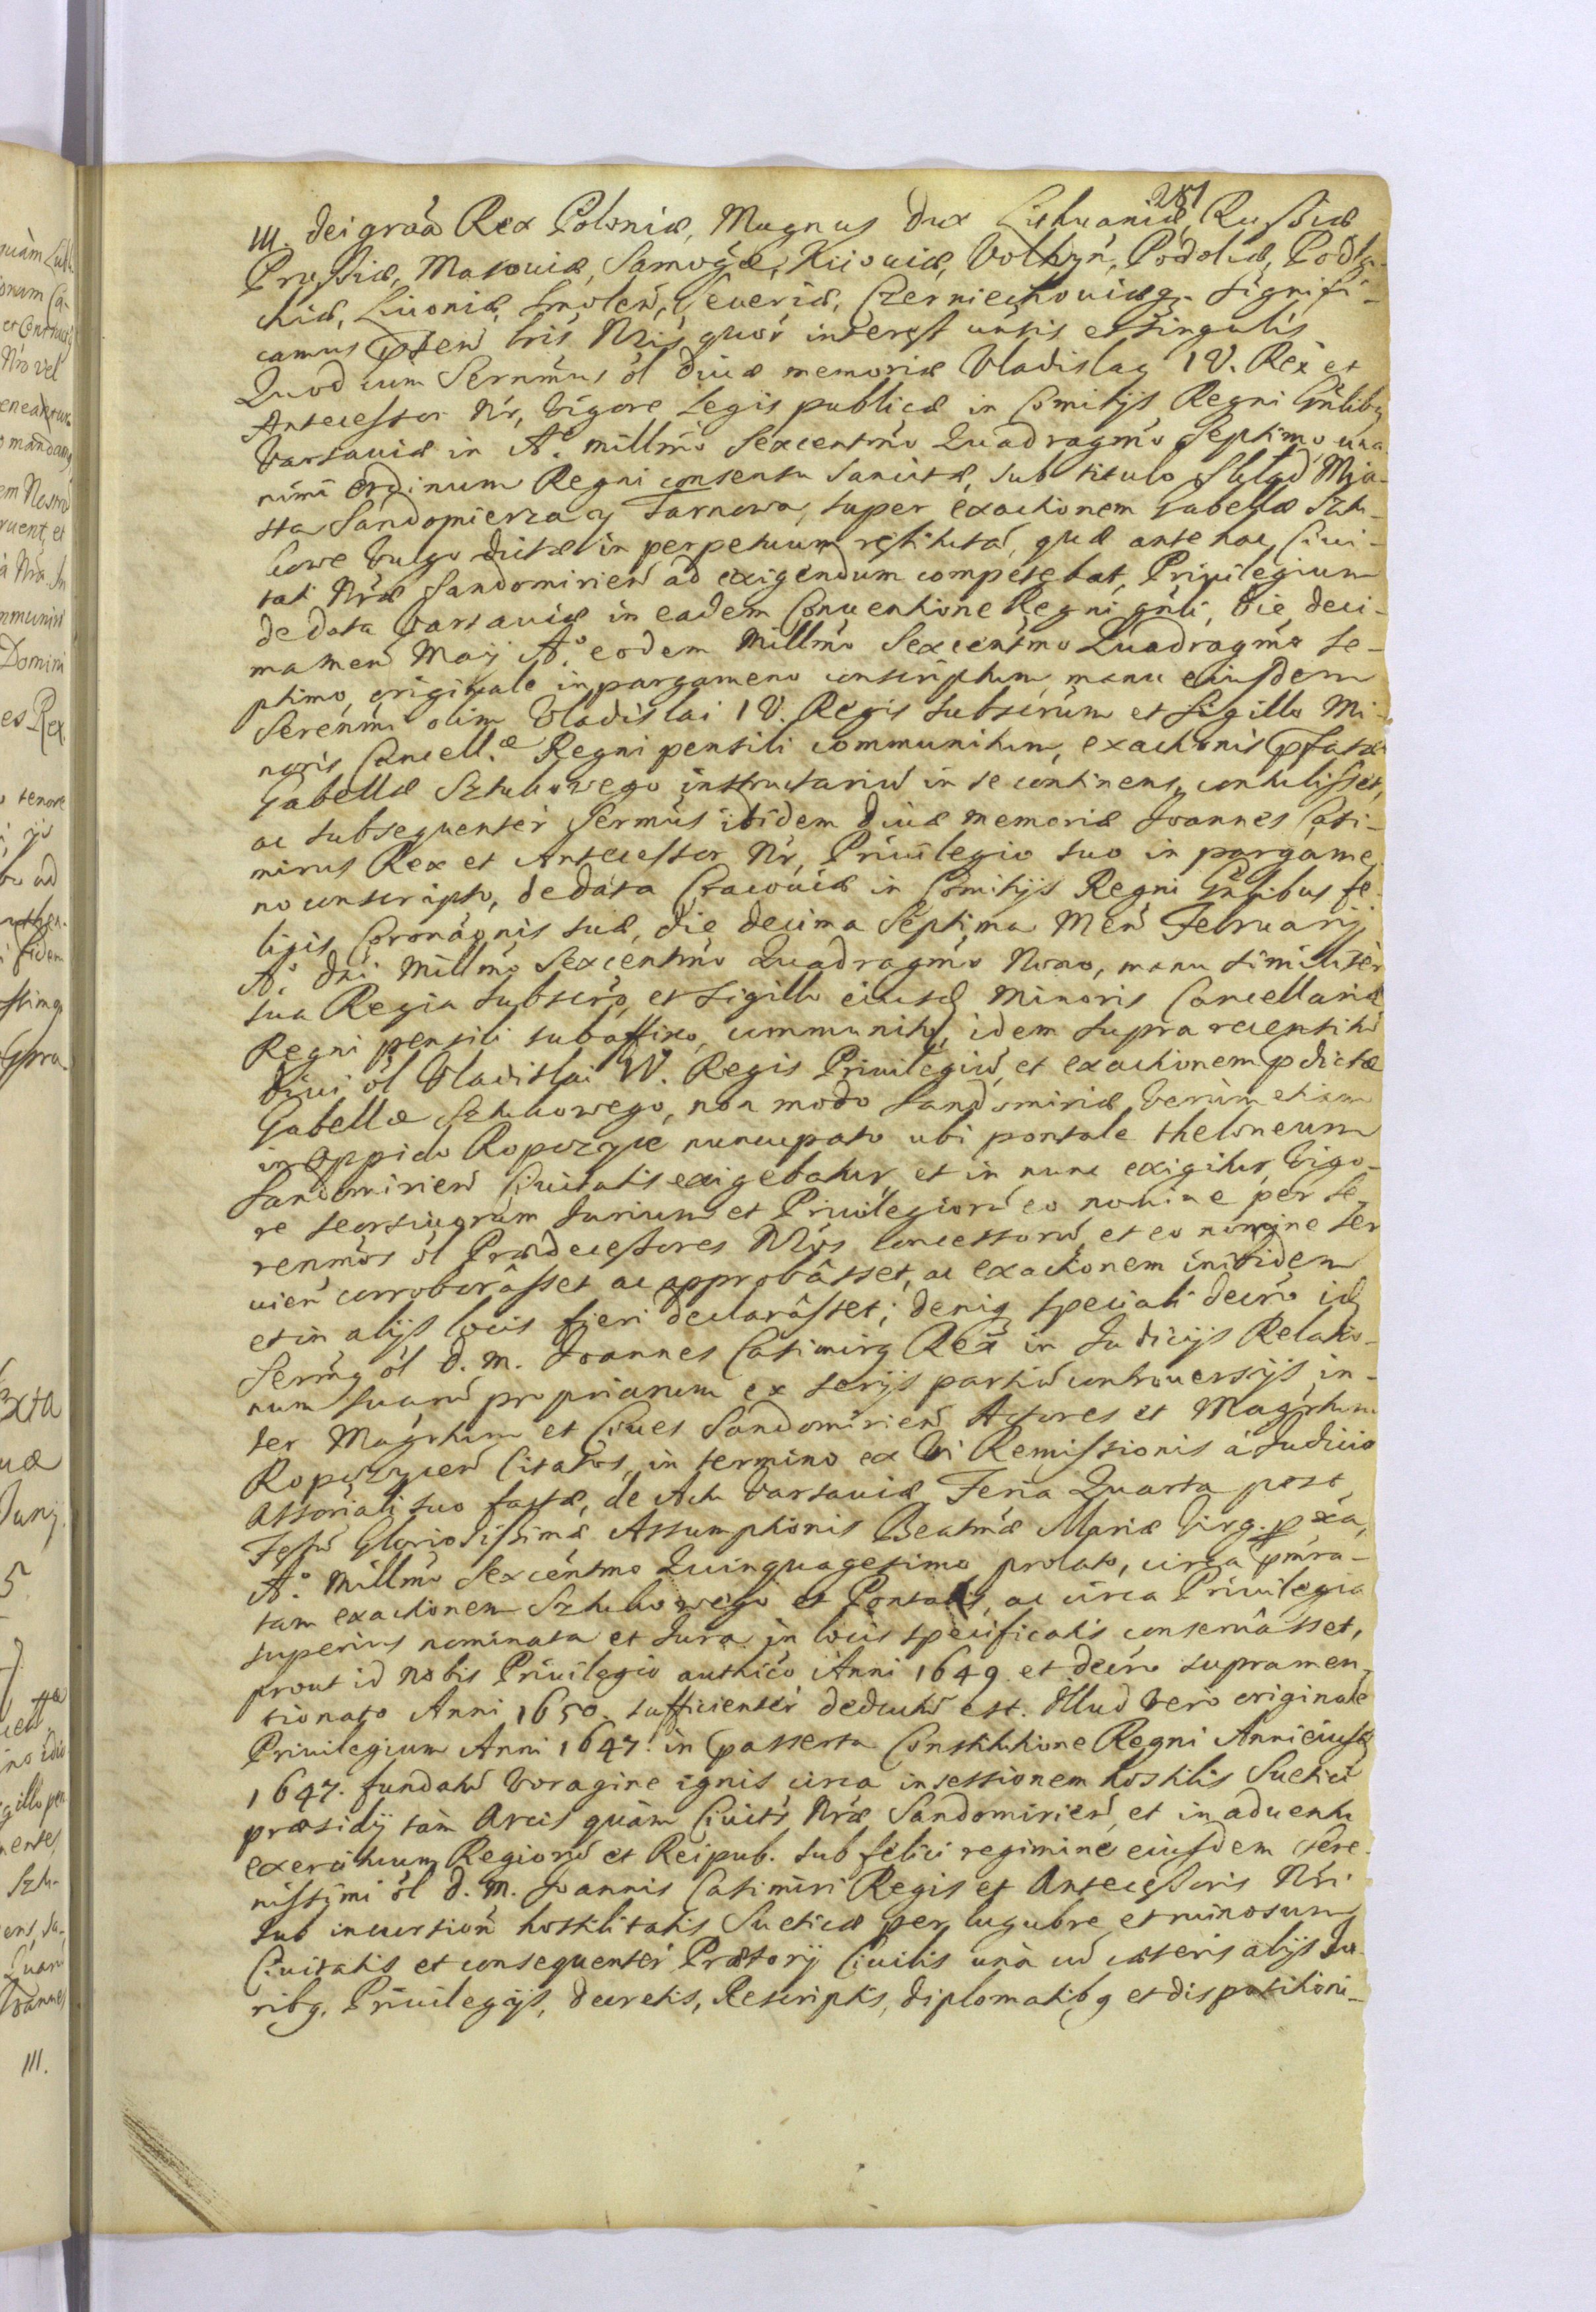 281
III. Dei graã Rex Poloniæ, Magnus Dux Lithuaniæ, Russiæ
Prussiæ, Masouiæ, Samogæ, Kiiouiæ, Volhyn̄, Podoliæ, Podla-
chiæ, Liuoniæ, Smolen̄, Seueriæ, Czerniechouiæq3. Signifi-
camus p̃sen̄ lris Nr̃is, quor̃ interest un̄sis et singulis
Quod cum Serñmus ol̃ diuæ memoriæ Vladislaq IV. Rex et
Antecessor Nr̃, vigore Legis publicæ in Comitijs Regni Gñlibq
Varsauiæ in Aº. millm̃o Sexcentm̃o Quadragm̃o Septimo, una
nimi ordinum Regni consensu sancitæ, sub titulo Skład Mia-
sta Sandomierza y Tarnowa, super exactionem Gabellæ Sztu-
kowe vulgo dictæ in perpetuum restitutã, quæ antehac Ciui-
tati Nr̃æ Sandomirien̄ ad exigendum competebat, Priuilegium
de data Varsauiæ in eadem Conuentione Regni gñli, die deci-
ma men̄ Maij Aº. eodem Millm̃o Sexcentm̃o Quadragm̃o Se-
ptimo, originale in pargameno conscriptum, manu eiusdem
Serenm̃i olim Vladislai IV. Regis subscriptum et sigillo Mi-
noris Cancell.æ Regni pensili communitum, exactionis p̃fatæ
Gabellæ Sztukowego instructariũ in se continens, contulisset,
ac subsequenter Serm̃us itidem diuæ memoriæ Joannes Casi-
mirus Rex et Antecessor Nr̃, Priuilegio suo in pargame
no conscripto, de data Cracouiæ in Comitijs Regni Gñlibus fe-
licis Coronãonis suæ, die decima Septima Men̄ Februarij
Aº. Dñi Millm̃o Sexcentm̃o Quadragm̃o Nono, manu similiter
sua Regia subscro, et sigillo eiusd Minoris Cancellariæ
Regni pensili subaffixo, communito, idem supra recensitũ
Diui ol̃ Vladislai IV. Regis Priuilegiũ, et exactionem p̃dictæ
Gabellæ Sztukowego, non modo Sandomiriæ, verùm etiam
in Oppido Ropczyce nuncupato ubi pontale theloneum
Sandomirien̄ Ciuitatis exigebatur, et in nunc exigitur, vigo-
re seorsiuorum Jurium et Priuilegiorũ eo nomine per Se-
renm̃os ol̃ Prædecessores Nr̃os concessorũ, et eo nomine ser
uien̄ corroborâsset ac approbâsset, ac exactionem inibidem
et in alijs locis fieri declarâsset; deniq3 speciali decr̃o id
Serm̃q ol̃ D. M. Joannes Casimirq Rex in Judicijs Relatio-
num suarũ propriarum ex serijs partiũ controuersijs in-
ter Magr̃tum et Ciues Sandomirien̄ Actores et Magr̃tum
Ropczycen̄ Citatos, in termino ex vi Remissionis à Judicio
Assoriali suo factæ, de Actu Varsauiæ Feria Quarta post
Festũ Gloriosissimæ Assumptionis Beatm̃æ Mariæ Virg. pxa,
Aº. Millm̃o Sexcentmo Quinquagesimo prolato, circa pm̃ra-
tam exactionem Sztukowego et Pontalis, ac circa Priuilegia
superius nominata et Jura in locis specificatis conseruâsset,
prout id nobis Priuilegio authico Anni 1649. et decr̃o supramen-
tionato Anni 1650. sufficienter deductũ est. Illud verò originale
Priuilegium Anni 1647. in passerta Constitutione Regni Anni eiusd
1647. fundatũ voragine ignis, circa insessionem hostilis Suetici
præsidij tàm Arcis quàm Ciuits Nr̃æ Sandomirien̄, et in aduentu
exercituum Regiorũ et Reipub. sub felici regimine eiusdem Sere-
nissimi ol̃ D. M. Joannis Casimiri Regis et Antecessoris Nr̃i
sub incursion̄ hostilitatis Sueticæ per lugubre et ruinosum
Ciuitatis et consequenter Prætorij Ciuilis unà cũ cæteris alijs Ju-
ribq, Priuilegijs, decretis, Rescriptis, diplomatibq et dispositioni-